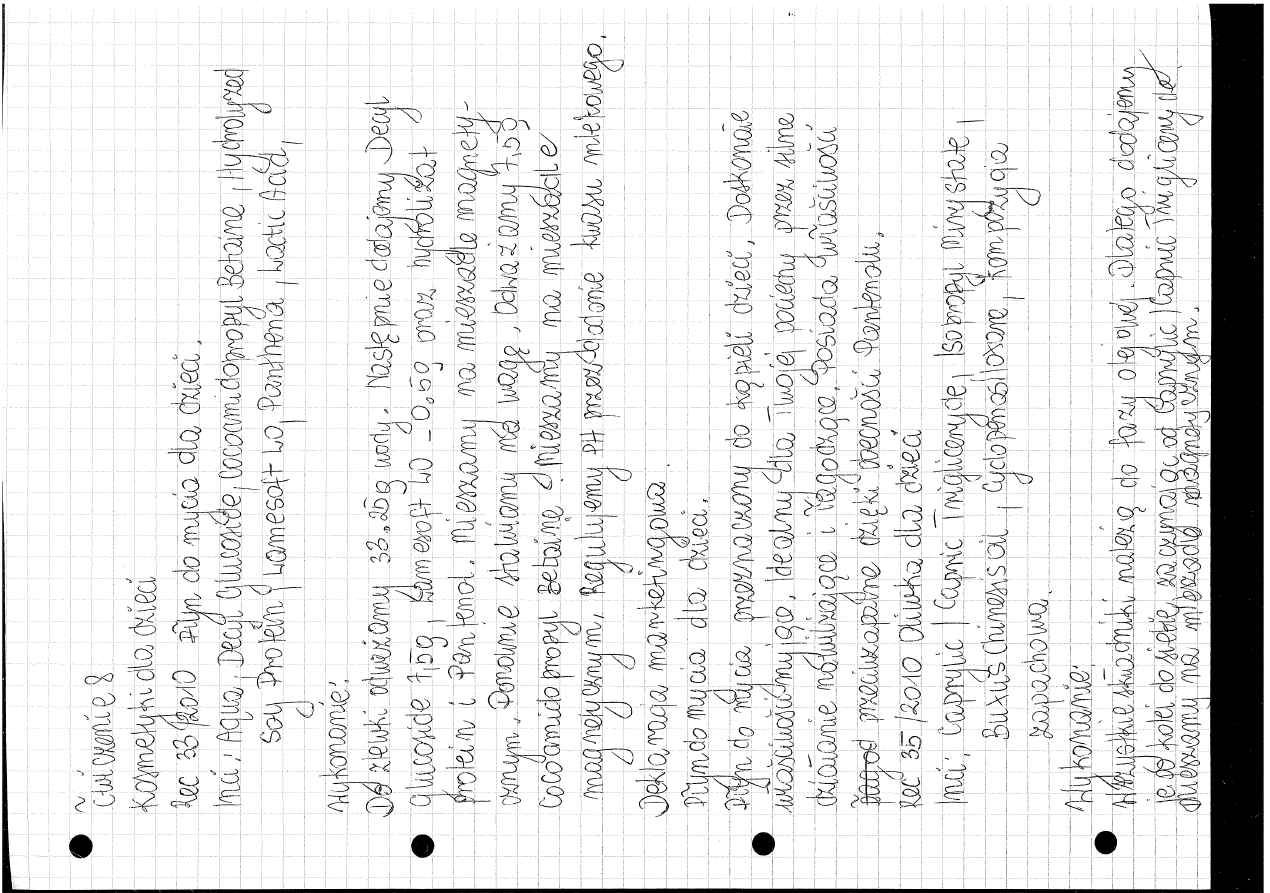 Ćwiczenie 8
Kosmetyki dla dzieci
Rec 33/2010 Płyn do mycia dla dzieci.
Inci: Aqua, Decyl Glucoside, Cocamidopropyl Betaine, Hydrolyzed
Soy Protein, Lamesoft LQ, Panthenol, Lactic Acid,
Wykonanie:
Do zlewki odważamy 33.25g wody. Następnie dodajemy Decyl
Glucoside 7,5g Lamesoft LQ - 0,5g oraz hydrolizat
protein i Pantenol. Mieszamy na mieszadle magnety-
cznym. Ponownie stawiamy na wagę, odważamy 7,5g
Cocoamidopropyl Betaine. Mieszamy na mieszadle
magnetycznym. Regulujemy PH przez dodanie kwasu mlekowego.
Deklaracja marketingowa.
Płyn do mycia dla dzieci.
Płyn do mycia przeznaczony do kąpieli dzieci. Doskonale
właściwości myjące, idealny dla Twojej pociechy przez silne
działanie nawilżające i łagodzące. Posiada właściwości
przeciwzapalne dzięki obecności Pantenolu.
Rec 35/2010 Oliwka dla dzieci
Inci: Caprylic/Capric Triglyceryde, Isopropyl Mirystate,
Buxus Chinensis oil, Cyclopenasiloxane, Kompozycja
zapachowa.
Wykonanie:
Wszystkie składniki należą do fazy olejowej. Dlatego dodajemy
je po kolei do siebie, zaczynając od Caprylic/Capric Triglicerydę
Mieszamy na mieszadle magnetycznym.